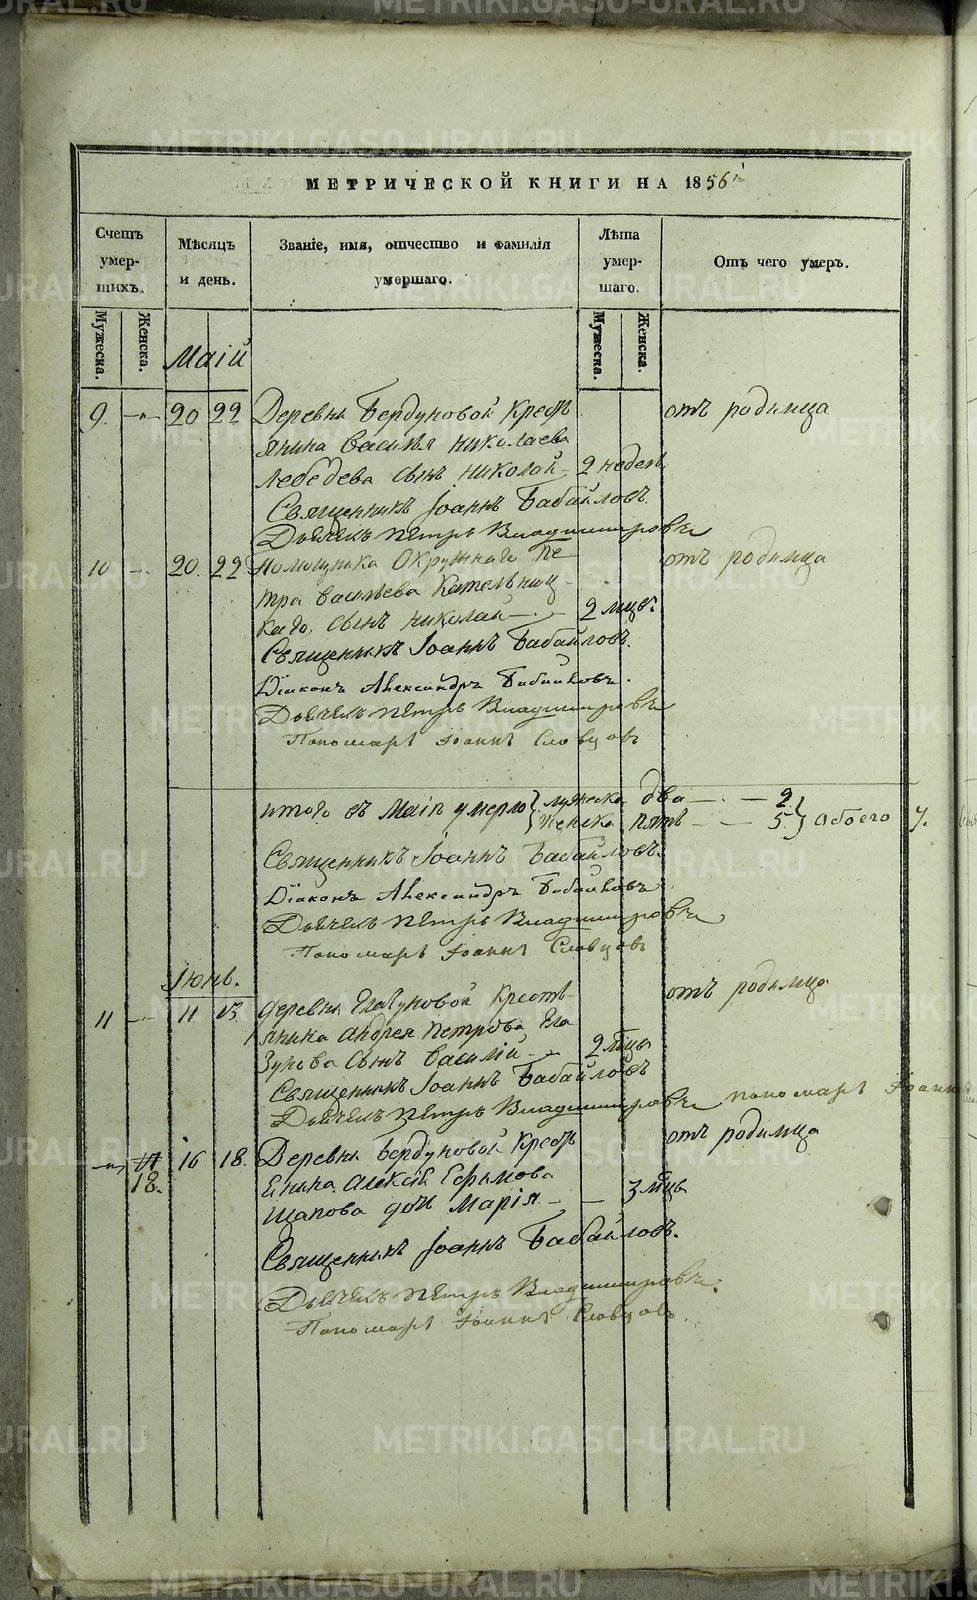 МЕТРИЧЕСКОЙ КНИГИ НА 1856
Счетъ умерших. Мѣсяцъ и день. Званіе, имя, отчество и фамилія умершаго. Лѣта умершаго. Отъ чего умеръ.
Мужеска. Женска. Мужеска. Женска.
Маій
9. 20 22 Деревни Бердуновой Крестъ отъ родимца
янина Василья Николаева
Лебедева сынъ Николай 2 недель
Священникъ Іоаннъ Бабайловъ.
Дьячекъ Петръ Владимировъ
10 20. 22 Помощника Окружнаго Пе отъ родимца
тра Васильева Котельниц
каго, сынъ Николай 2 мцъ.
Священникъ Іоаннъ Бабайловъ.
Діаконъ Александръ Бабайловъ.
Дьячекъ Петръ Владимировъ
Пономарь Іоаннъ Словцовъ
итого въ Маіѣ умерло мужеска два 2.
женска пять 5. Обоего 7.
Священникъ Іоаннъ Бабайловъ.
Діаконъ Александръ Бабайловъ
Дьячекъ Петръ Владимировъ
Пономарь Іоаннъ Словцовъ
Іюнь.
11 11 13. деревни Глазуновой Кресть отъ родимца
янина Андрея Петрова Гла
зунова сынъ Василій 2 мцы
Священникъ Іоаннъ Бабайловъ
Дьячекъ Петръ Владимировъ пономарь Іоаннъ
18. 16 18. Деревни Бердуновой Крест отъ родимца
енина Алексѣя Ефимова
Щапова дочь Марія 3 мцъ
Священникъ Іоаннъ Бабайловъ.
Дьячекъ Петръ Владимировъ.
Пономарь Іоаннъ Словцовъ.